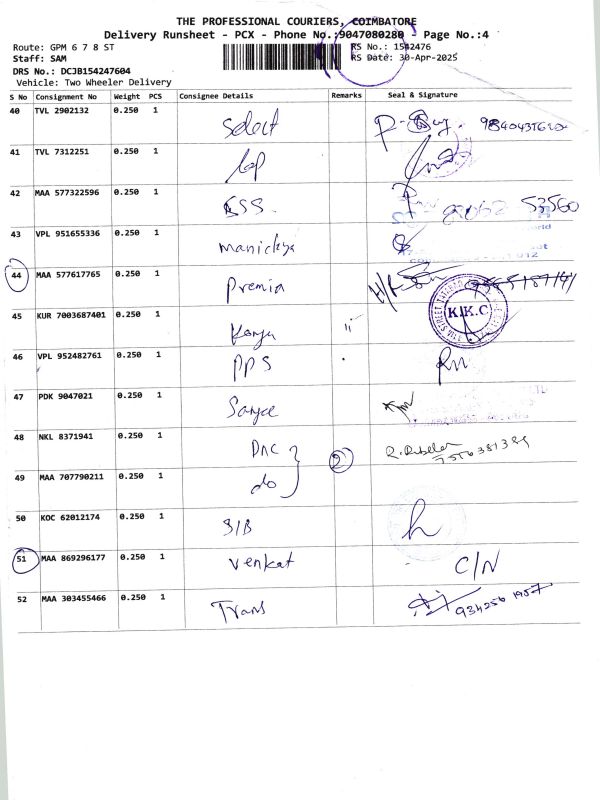 THE PROFESSIONAL COURIERS, COIMBATORE
Delivery Runsheet - PCX - Phone No.:9047080280 - Page No.:4
Route: GPM 6 7 8 ST
RS No.: 1542476
Staff: SAM
RS Date: 30-Apr-2025
DRS No.: DCJB154247604
Vehicle: Two Wheeler Delivery
S No Consignment No Weight PCS Consignee Details Remarks Seal & Signature
40 TVL 2902132 0.250 1 Select
41 TVL 7312251 0.250 1
42 MAA 577322596 0.250 1 KSS. 53560
43 VPL 951655336 0.250 1 Manickya
44 MAA 577617765 0.250 1 Premia
45 KUR 7003687401 0.250 1 K.K.C
46 VPL 952482761 0.250 1 PPS
47 PDK 9047021 0.250 1
48 NKL 8371941 0.250 1 DNC 2
49 MAA 707790211 0.250 1 do
50 KOC 62012174 0.250 1 SIB
51 MAA 869296177 0.250 1 Venkat C/N
52 MAA 303455466 0.250 1 Trans